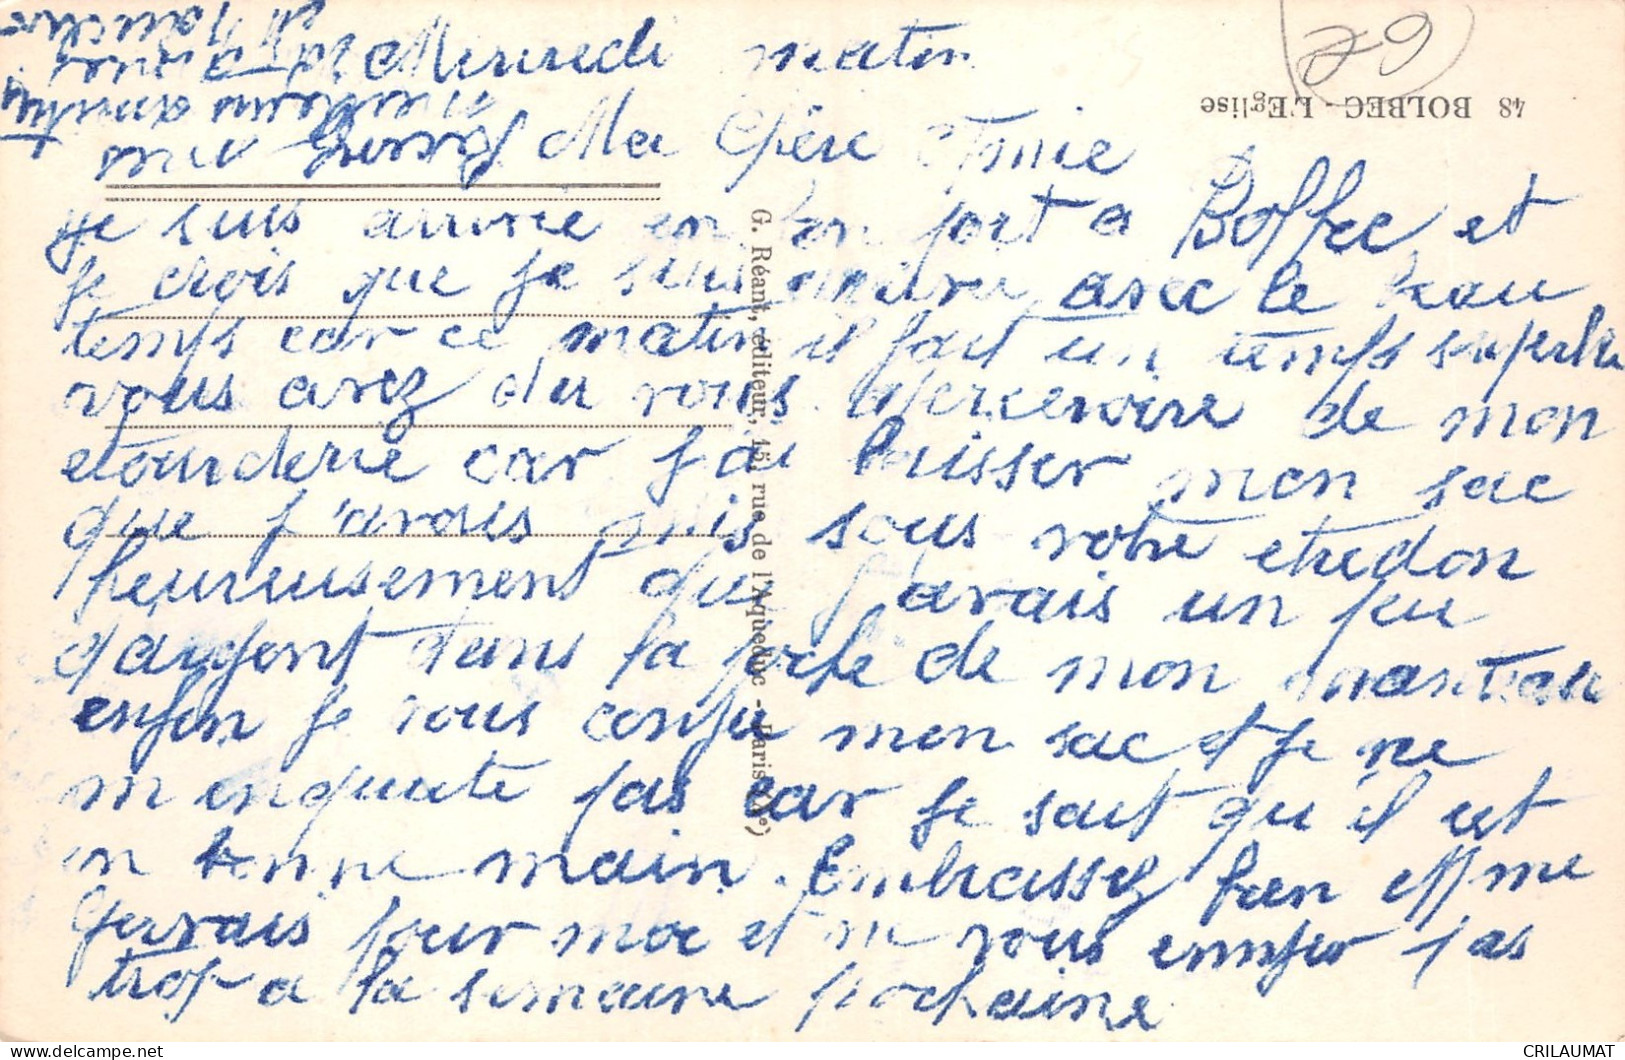 Mercredi matin
Ma Chère Amie
je suis arrivée en bon port a Bolbec, et
je crois que je suis avec le beau
temps car ce matin il fait un temps superbe
vous avez du vous apercevoire de mon
etourderie car j'ai laisser mon sac
que j'avais mis sous votre etredon
heureusement que j'avais un peu
d'argent dans la poche de mon manteau
enfin je vous confie mon sac et je ne
m'enquiete pas car je sait qu'il est
en bonne main. Embrassez bien Mme
Gervais pour moi et ne vous ennuyer pas
trop a la semaine prochaine
48 BOLBEC - L'Eglise
G. Réant, éditeur, 15, rue de l'Aqueduc - Paris (Xe)
CRILAUMAT